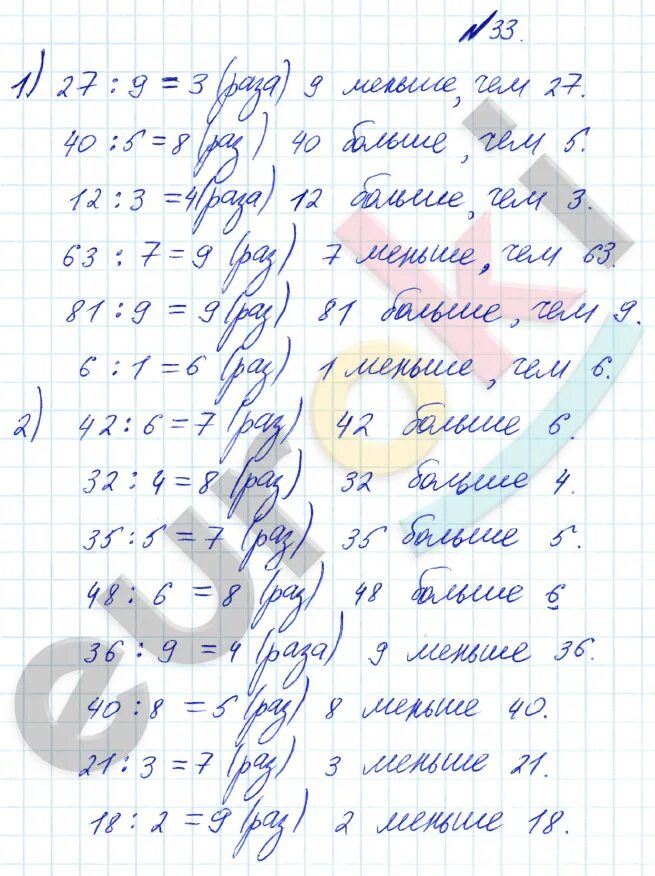 №33.
1) 27 : 9 = 3 (раза) 9 меньше, чем 27.
40 : 5 = 8 (раз) 40 больше, чем 5.
12 : 3 = 4 (раза) 12 больше, чем 3.
63 : 7 = 9 (раз) 7 меньше, чем 63.
81 : 9 = 9 (раз) 81 больше, чем 9.
6 : 1 = 6 (раз) 1 меньше, чем 6.
2) 42 : 6 = 7 (раз) 42 больше 6.
32 : 4 = 8 (раз) 32 больше 4.
35 : 5 = 7 (раз) 35 больше 5.
48 : 6 = 8 (раз) 48 больше 6
36 : 9 = 4 (раза) 9 меньше 36.
40 : 8 = 5 (раз) 8 меньше 40.
21 : 3 = 7 (раз) 3 меньше 21.
18 : 2 = 9 (раз) 2 меньше 18.
euroki